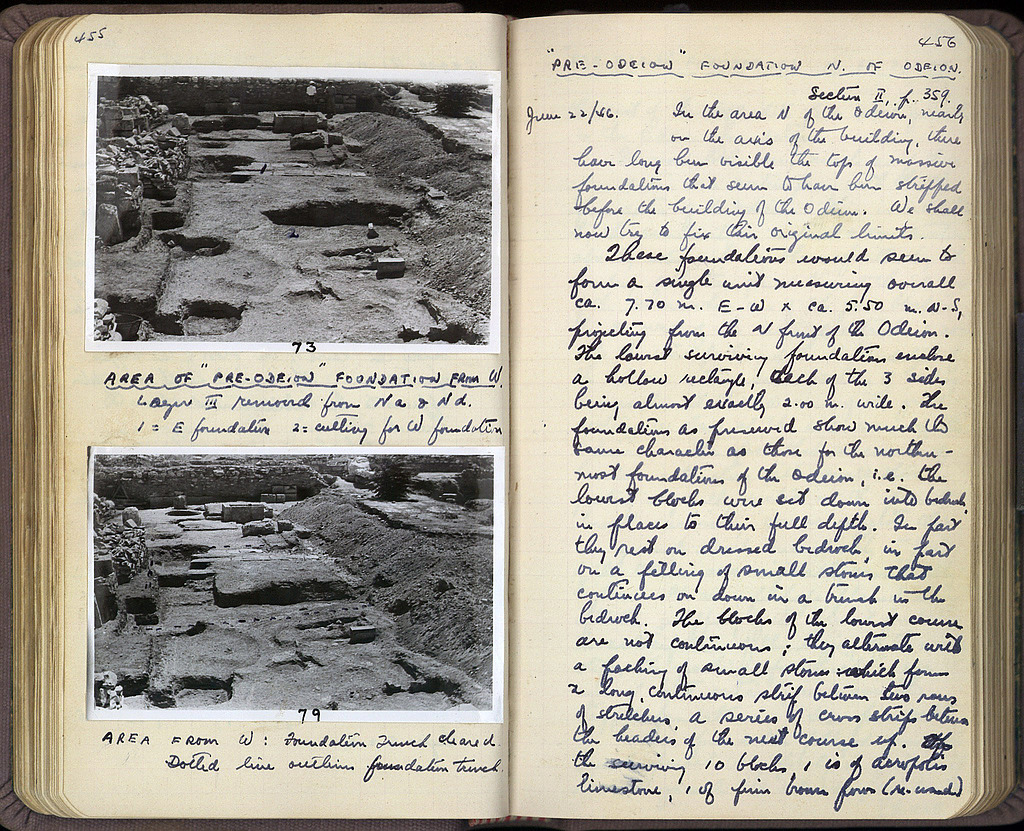 455
73
AREA OF "PRE-ODEION" FOUNDATION FROM W.
Layer III removed from Na & Nd.
1 = E foundation 2 = cutting for W foundation
79
AREA FROM W: Foundation Trench cleared.
Dotted line outlines foundation trench.
456
"PRE-ODEION" FOUNDATION N. OF ODEION.
Section II, p. 359.
June 22/46. In the area N of the Odeion, nearly
on the axis of the building, there
have long been visible the tops of massive
foundations that seem to have been stripped
before the building of the Odeion. We shall
now try to fix their original limits.
These foundations would seem to
form a single unit measuring overall
ca. 7.70 m. E-W x ca. 5.50 m. N-S,
projecting from the N front of the Odeion.
The lowest surviving foundations enclose
a hollow rectangle, each of the 3 sides
being almost exactly 2.00 m. wide. The
foundations as preserved show much the
same character as those for the northern-
most foundations of the Odeion, i.e. the
lowest blocks were set down into bedrock,
in places to their full depth. In part
they rest on dressed bedrock, in part
on a filling of small stones that
continues on down in a trench in the
bedrock. The blocks of the lowest course
are not continuous; they alternate with
a packing of small stones which forms
a long, continuous strip between two rows
of stretchers, a series of cross strips between
the headers of the next course up. Of
the surviving 10 blocks, 1 is of acropolis
limestone, 1 of firm brown poros (re-used)